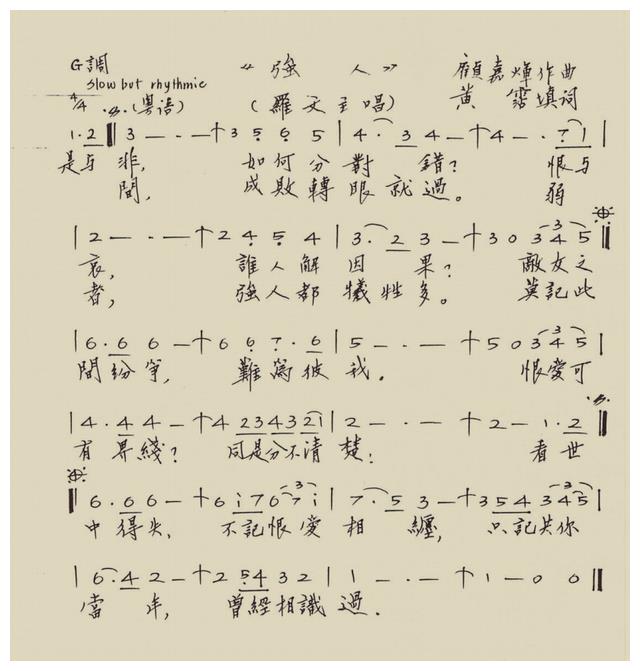 G調 《 強 人 》 顧嘉煇作曲
slow but rhythmic
4/4 (粵语) (羅文主唱) 黃霑填詞
1·2 ‖ 3 — · — † 3 5 6 5 | 4· 3 4 — † 4 — · 7 1 |
是与 非, 如何分對 錯? 恨与
間, 成敗轉眼就過。 弱
| 2 — · — † 2 4 5 4 | 3· 2 3 — † 3 0 3 4 5 ‖
哀, 誰人解因 果? 敵友之
者, 強人都犧牲多。 莫記此
| 6· 6 6 — † 6 6 7· 6 | 5 — · — † 5 0 3 4 5 |
間紛爭, 難爲彼我. 恨愛可
| 4· 4 4 — † 4 23 43 21 | 2 — · — † 2 — 1·2 ‖
有界綫? 同是分不清楚; 看世
‖ 6· 6 6 — † 6 i7 6 7 i | 7· 5 3 — † 3 54 3 4 5 |
中得失, 不記恨愛相 纏, 只記共你
| 6· 4 2 — † 2 54 3 2 | 1 — · — † 1 — 0 0 ‖
當 年, 曾經相識過.